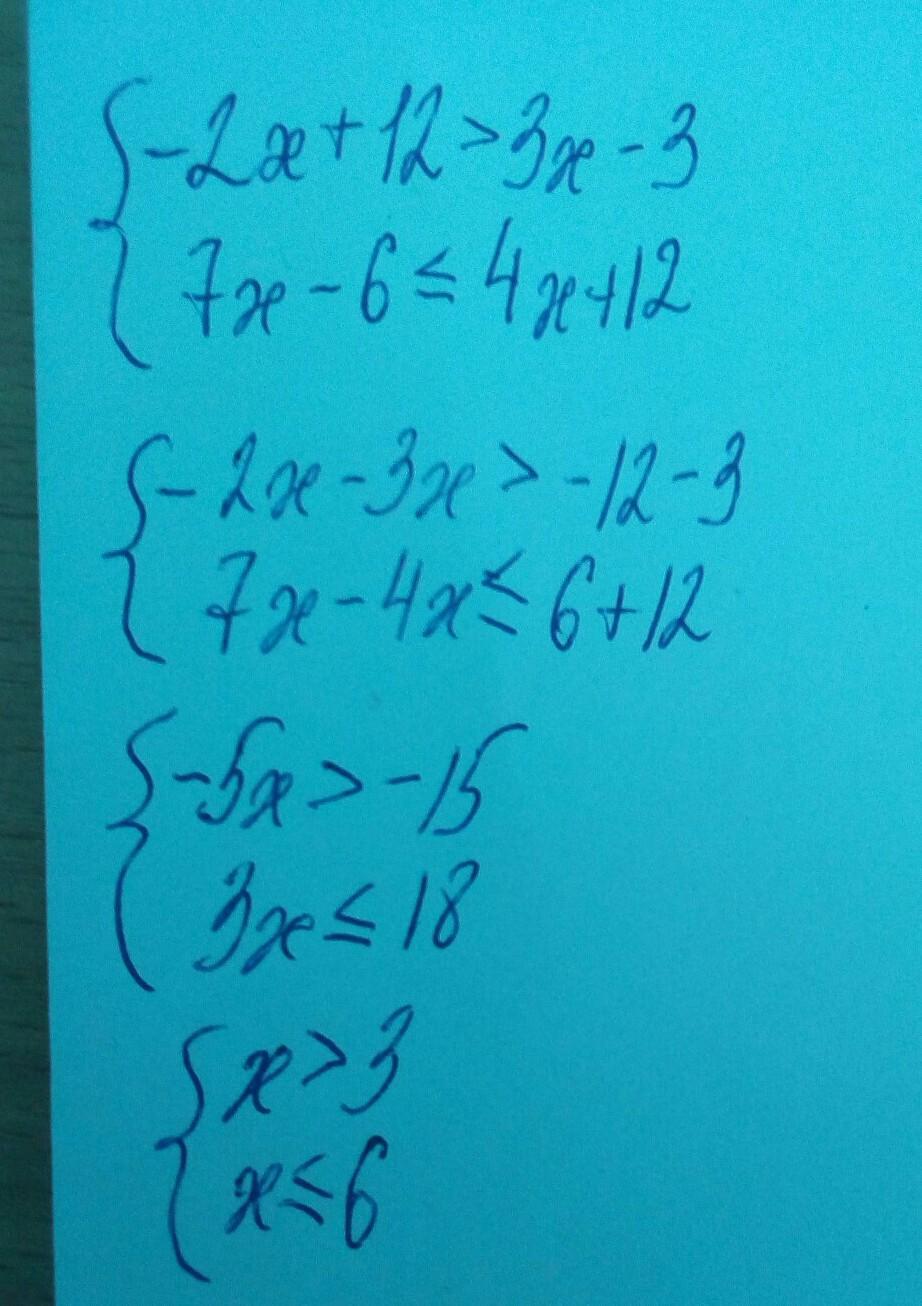 -2x+12>3x-3
7x-6≤4x+12
-2x-3x>-12-3
7x-4x≤6+12
-5x>-15
3x≤18
x>3
x≤6